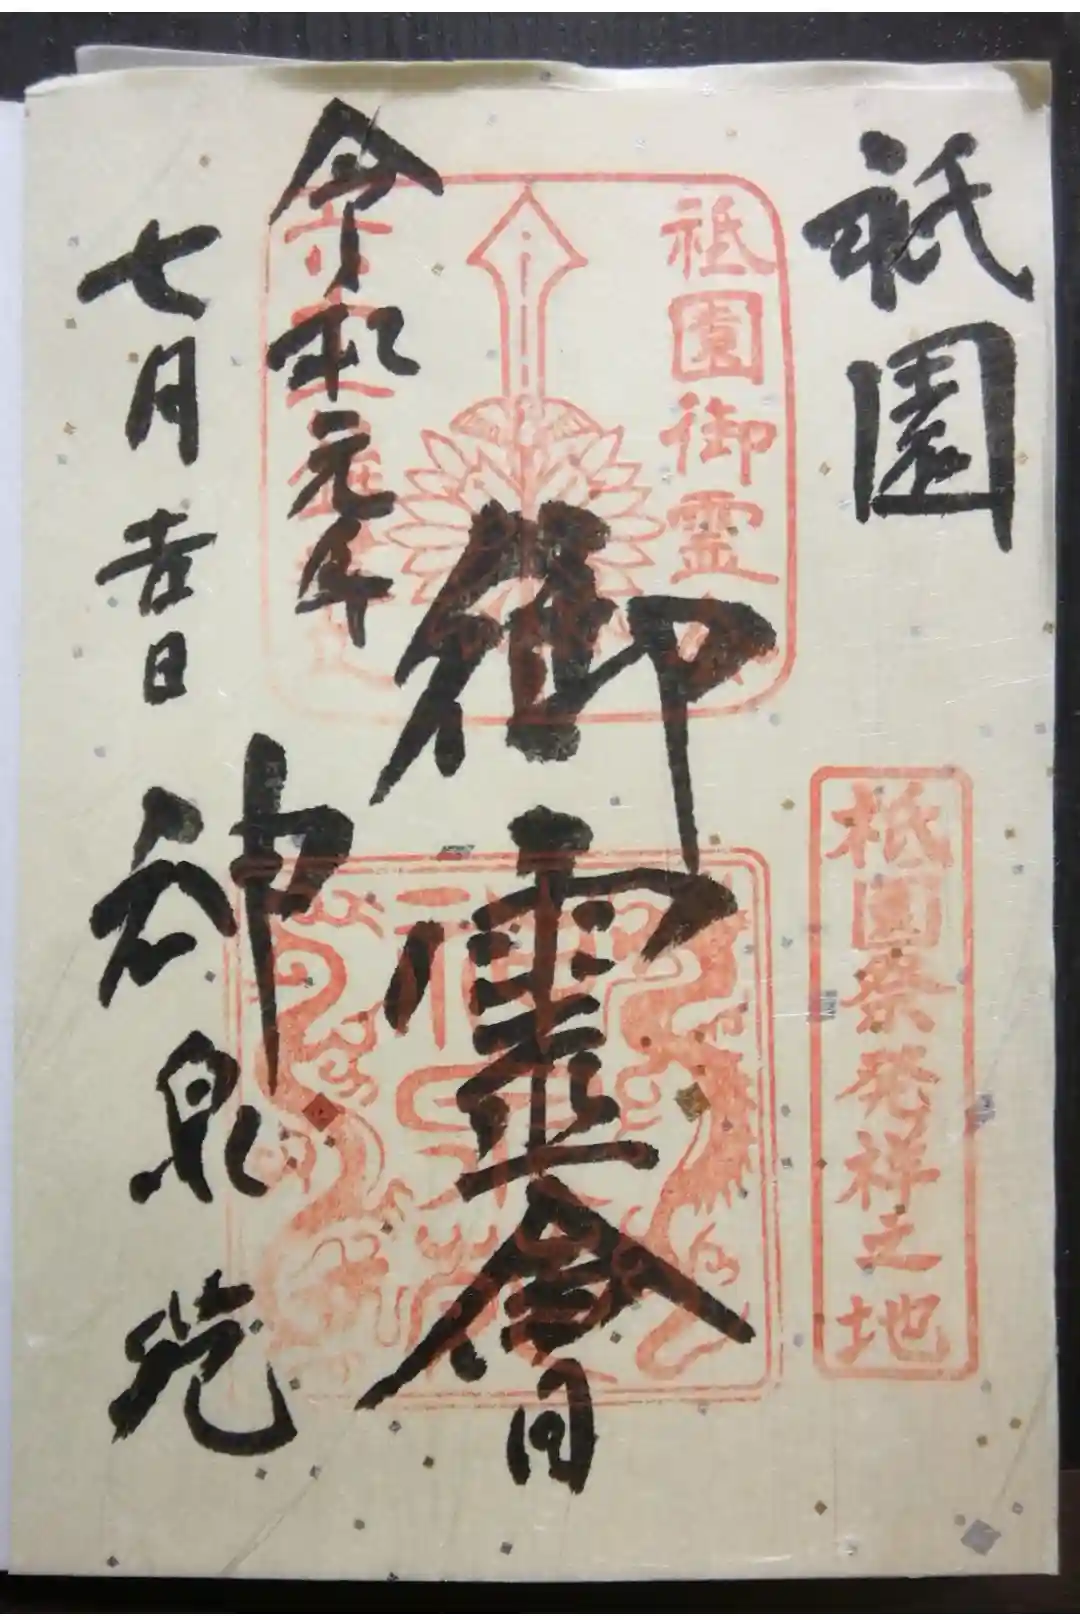 祇園
御霊會
令和元年
七月吉日
神泉苑
祇園御霊会
祇園祭発祥之地
神泉苑